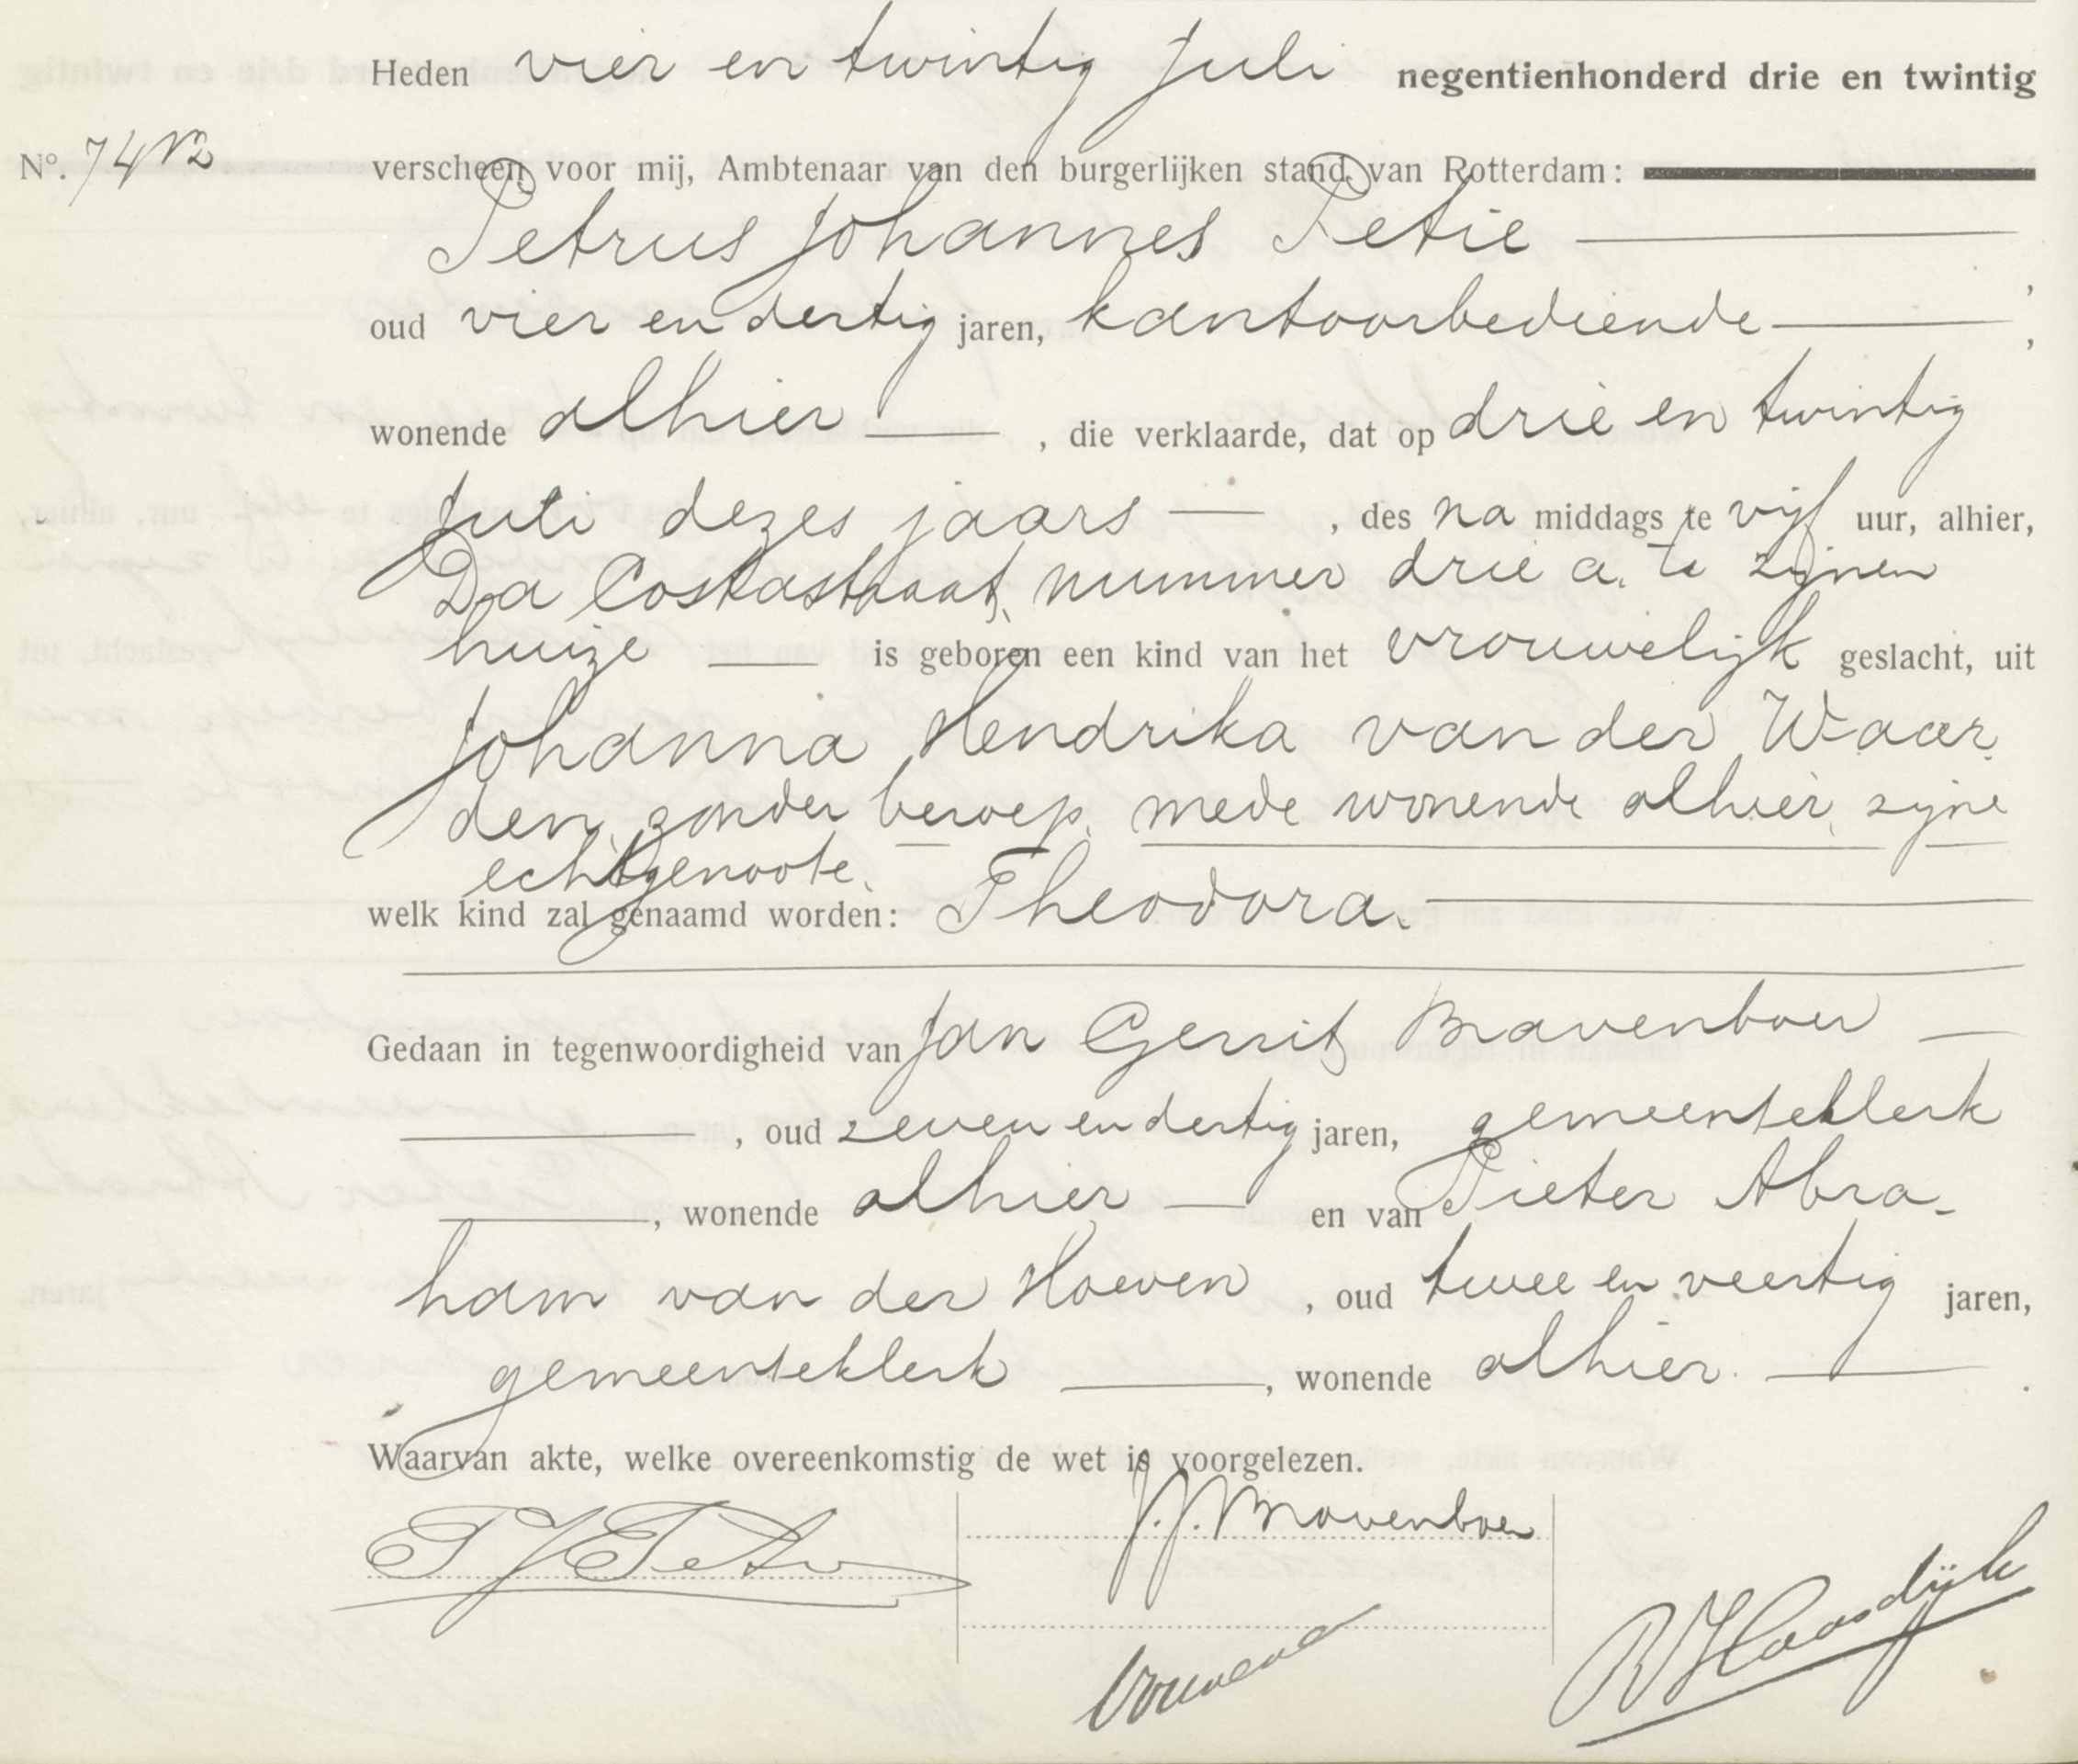 Heden vier en twintig Juli negentienhonderd drie en twintig
No. 74
verscheen voor mij, Ambtenaar van den burgerlijken stand van Rotterdam:
Petrus Johannes Petie
oud vier en dertig jaren, kantoorbediende ,
wonende alhier , die verklaarde, dat op drie en twintig
Juli dezes jaars , des na middags te vijf uur, alhier,
Da Costastraat, nummer drie a, te zijnen
huize is geboren een kind van het vrouwelijk geslacht, uit
Johanna Hendrika van der Waar-
den, zonder beroep, mede wonende alhier, zijne
echtgenoote,
welk kind zal genaamd worden: Theodora.
Gedaan in tegenwoordigheid van Jan Gerrit Bravenboer
, oud zeven en dertig jaren, gemeenteklerk
, wonende alhier en van Pieter Abra-
ham van der Hoeven , oud twee en veertig jaren,
gemeenteklerk , wonende alhier. .
Waarvan akte, welke overeenkomstig de wet is voorgelezen.
P J Petie
Bravenboer